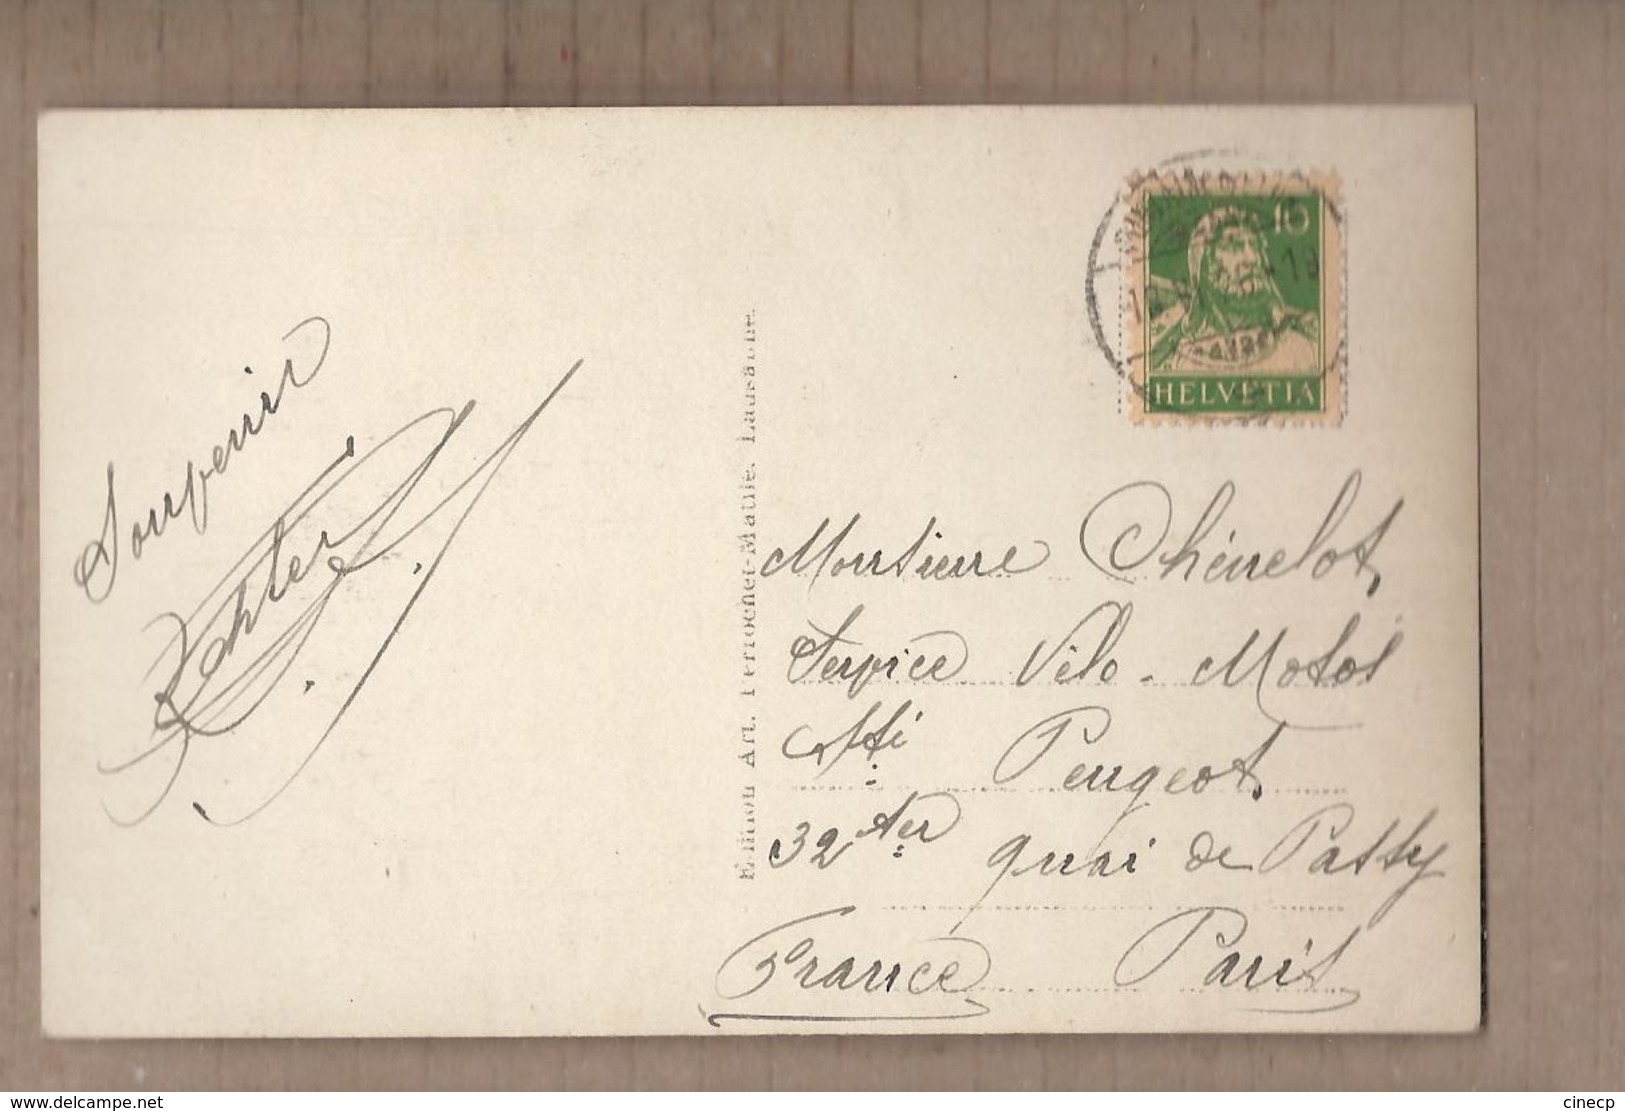 Souvenir
10
HELVETIA
Edition Art. Perrochet-Matile. Lausanne.
Monsieur Chénelot,
Service Vélo-Motos
Peugeot,
32 ter quai de Passy
France Paris
www.delcampe.net
cinecp